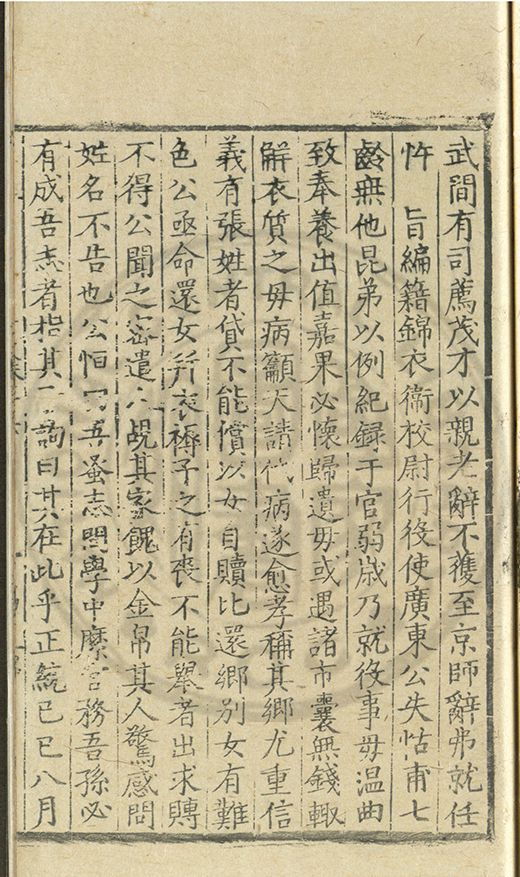 武間有司薦茂才以親老辭不獲至京師辭弗就任
忤　旨編籍錦衣衞校尉行役使廣東公失怙甫七
齡無他昆弟以例紀録于官弱歲乃就役事毋温曲
致奉養出值嘉果必懷歸遺毋或遇諸市囊無錢輙
解衣質之毋病籲天請代病遂愈孝稱其鄉尤重信
義有張姓者貸不能償以女自贖比還鄉別女有難
色公亟命還女并衣褥予之有喪不能舉者出求賻
不得公聞之密遣人覘其家餽以金帛其人驚感問
姓名不告也公恒曰吾蚤志問學中縻官務吾孫必
有成吾志者指其曰其在此乎正統己巳八月